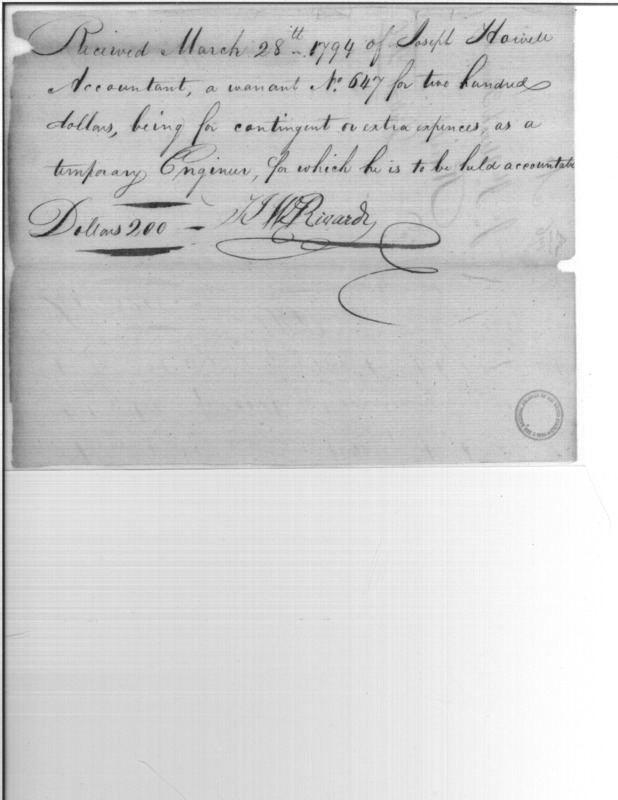 Received March 28th 1794 of Joseph Howell
Accountant, a warrant No. 647 for two hundred
dollars, being for contingent or extra expences, as a
temporary Engineer, for which he is to be held accountable
Dollars 200 — Rivardi